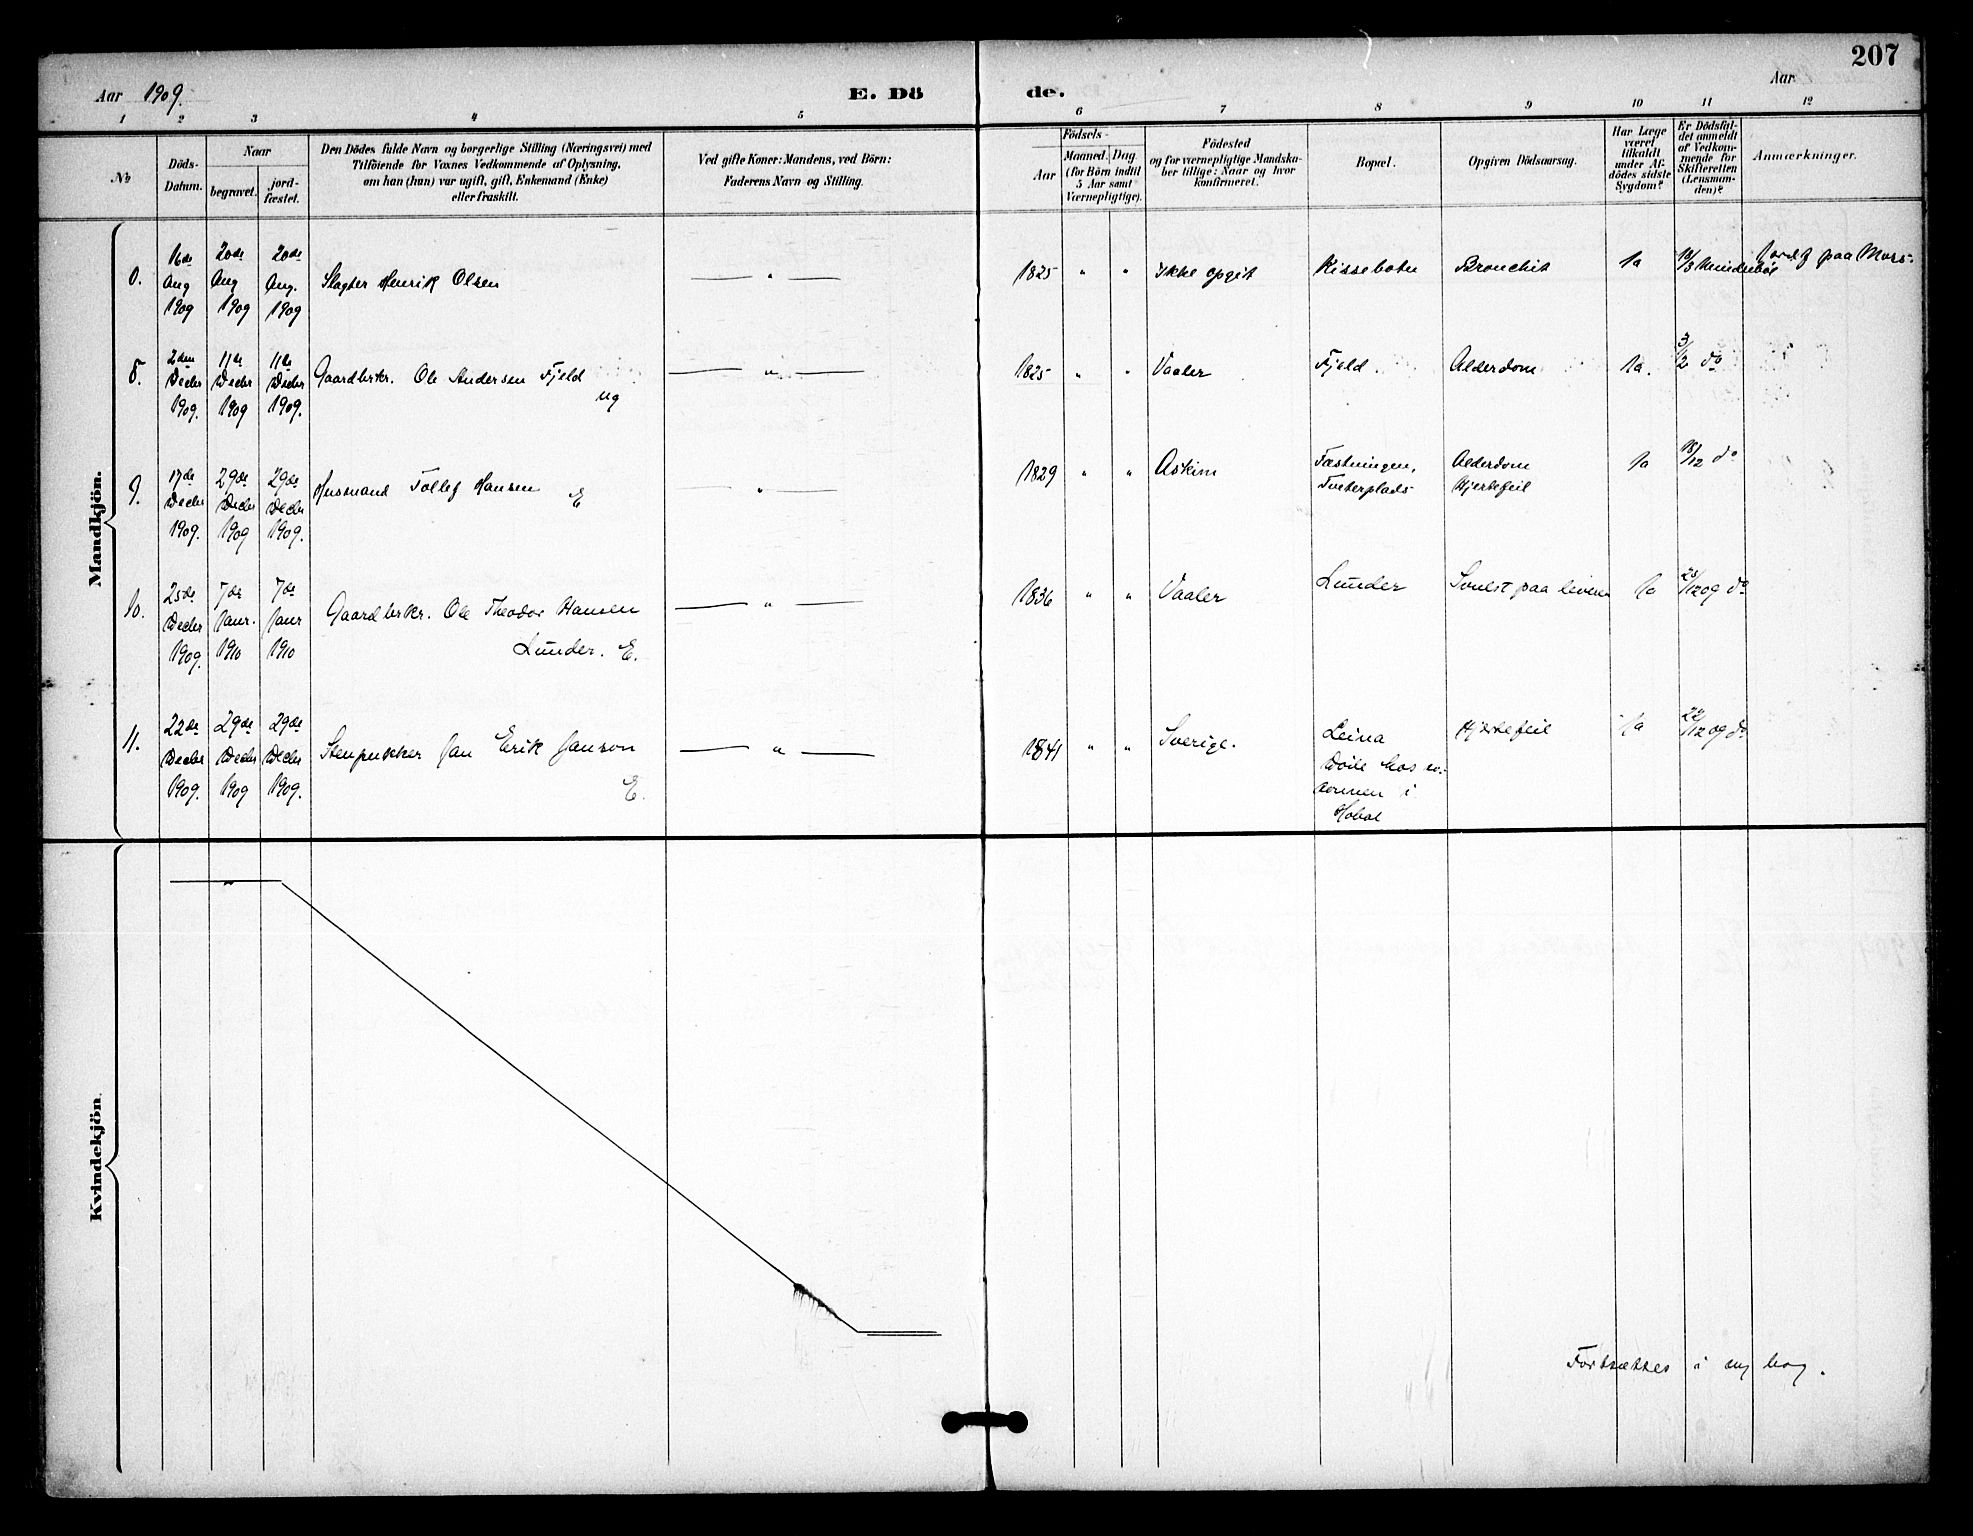 207
Aar 1909. E. Dö de. Aar
1 2 3 4 5 6 7 8 9 10 11 12
No
Döds-
Datum.
Naar
begravet.
jord-
fæstet.
Den Dödes fulde Navn og borgerlige Stilling (Næringsvei) med
Tilföiende for Voxnes Vedkommende af Oplysning,
om han (hun) var ugift, gift, Enkemand (Enke)
eller fraskilt.
Ved gifte Koner: Mandens, ved Börn:
Faderens Navn og Stilling.
Födsels-
Aar
Maaned. Dag
(for Börn indtil
5 Aar samt
Værnepligtige).
Födested
og for værnepligtige Mandska-
ber tillige: Naar og hvor
konfirmeret.
Bopæl.
Opgiven Dödsaarsag.
Har Læge
været
tilkaldt
under Af-
dödes sidste
Sygdom?
Er Dödsfal-
det anmeldt
af Vedkom-
mende for
Skifteretten
(Lensman-
den)?
Anmærkninger.
Mandkjön.
0.
16de
Aug
1909
20de
Aug
1909
20de
Aug.
1909
Slagter Henrik Olsen
— " —
1825 " "
Ikke opgit
Kissebotn
Bronchit
Ja
paa Moss.
8.
2den
Decbr
1909.
11de
Decbr
1909
11de
Decbr
1909.
Gaardbrkr. Ole Andersen Fjeld
ug
— " —
1825 " "
Vaaler
Fjeld
Alderdom
Ja.
3/12 do
9.
17de
Decbr
1909.
29de
Decbr
1909
29de
Decbr
1909.
Husmand Tollef Hansen
E
— " —
1829 " "
Askim
Fæstningen,
Tveterplads
Alderdom
Hjertefeil
Ja
18/12 do
10.
25de
Decbr
1909.
7de
Janr.
1910
7de
Janr
1910
Gaardbrkr. Ole Theodor Hansen
Lunder. E.
— " —
1836 " "
Vaaler
Lunder
Svulst paa leveren
Ja
28/12 09 do
11.
22de
Decbr
1909.
29de
Decbr
1909
29de
Decbr
1909.
Stenpukker Jan Erik Janson
E.
— " —
1841 " "
Sverige.
Leina
Döde hos sv.
sönnen i
Hobøl
Hjertefeil
Ja
22/12 09 do
Kvindekjön.
Fortsættes i ny bog.